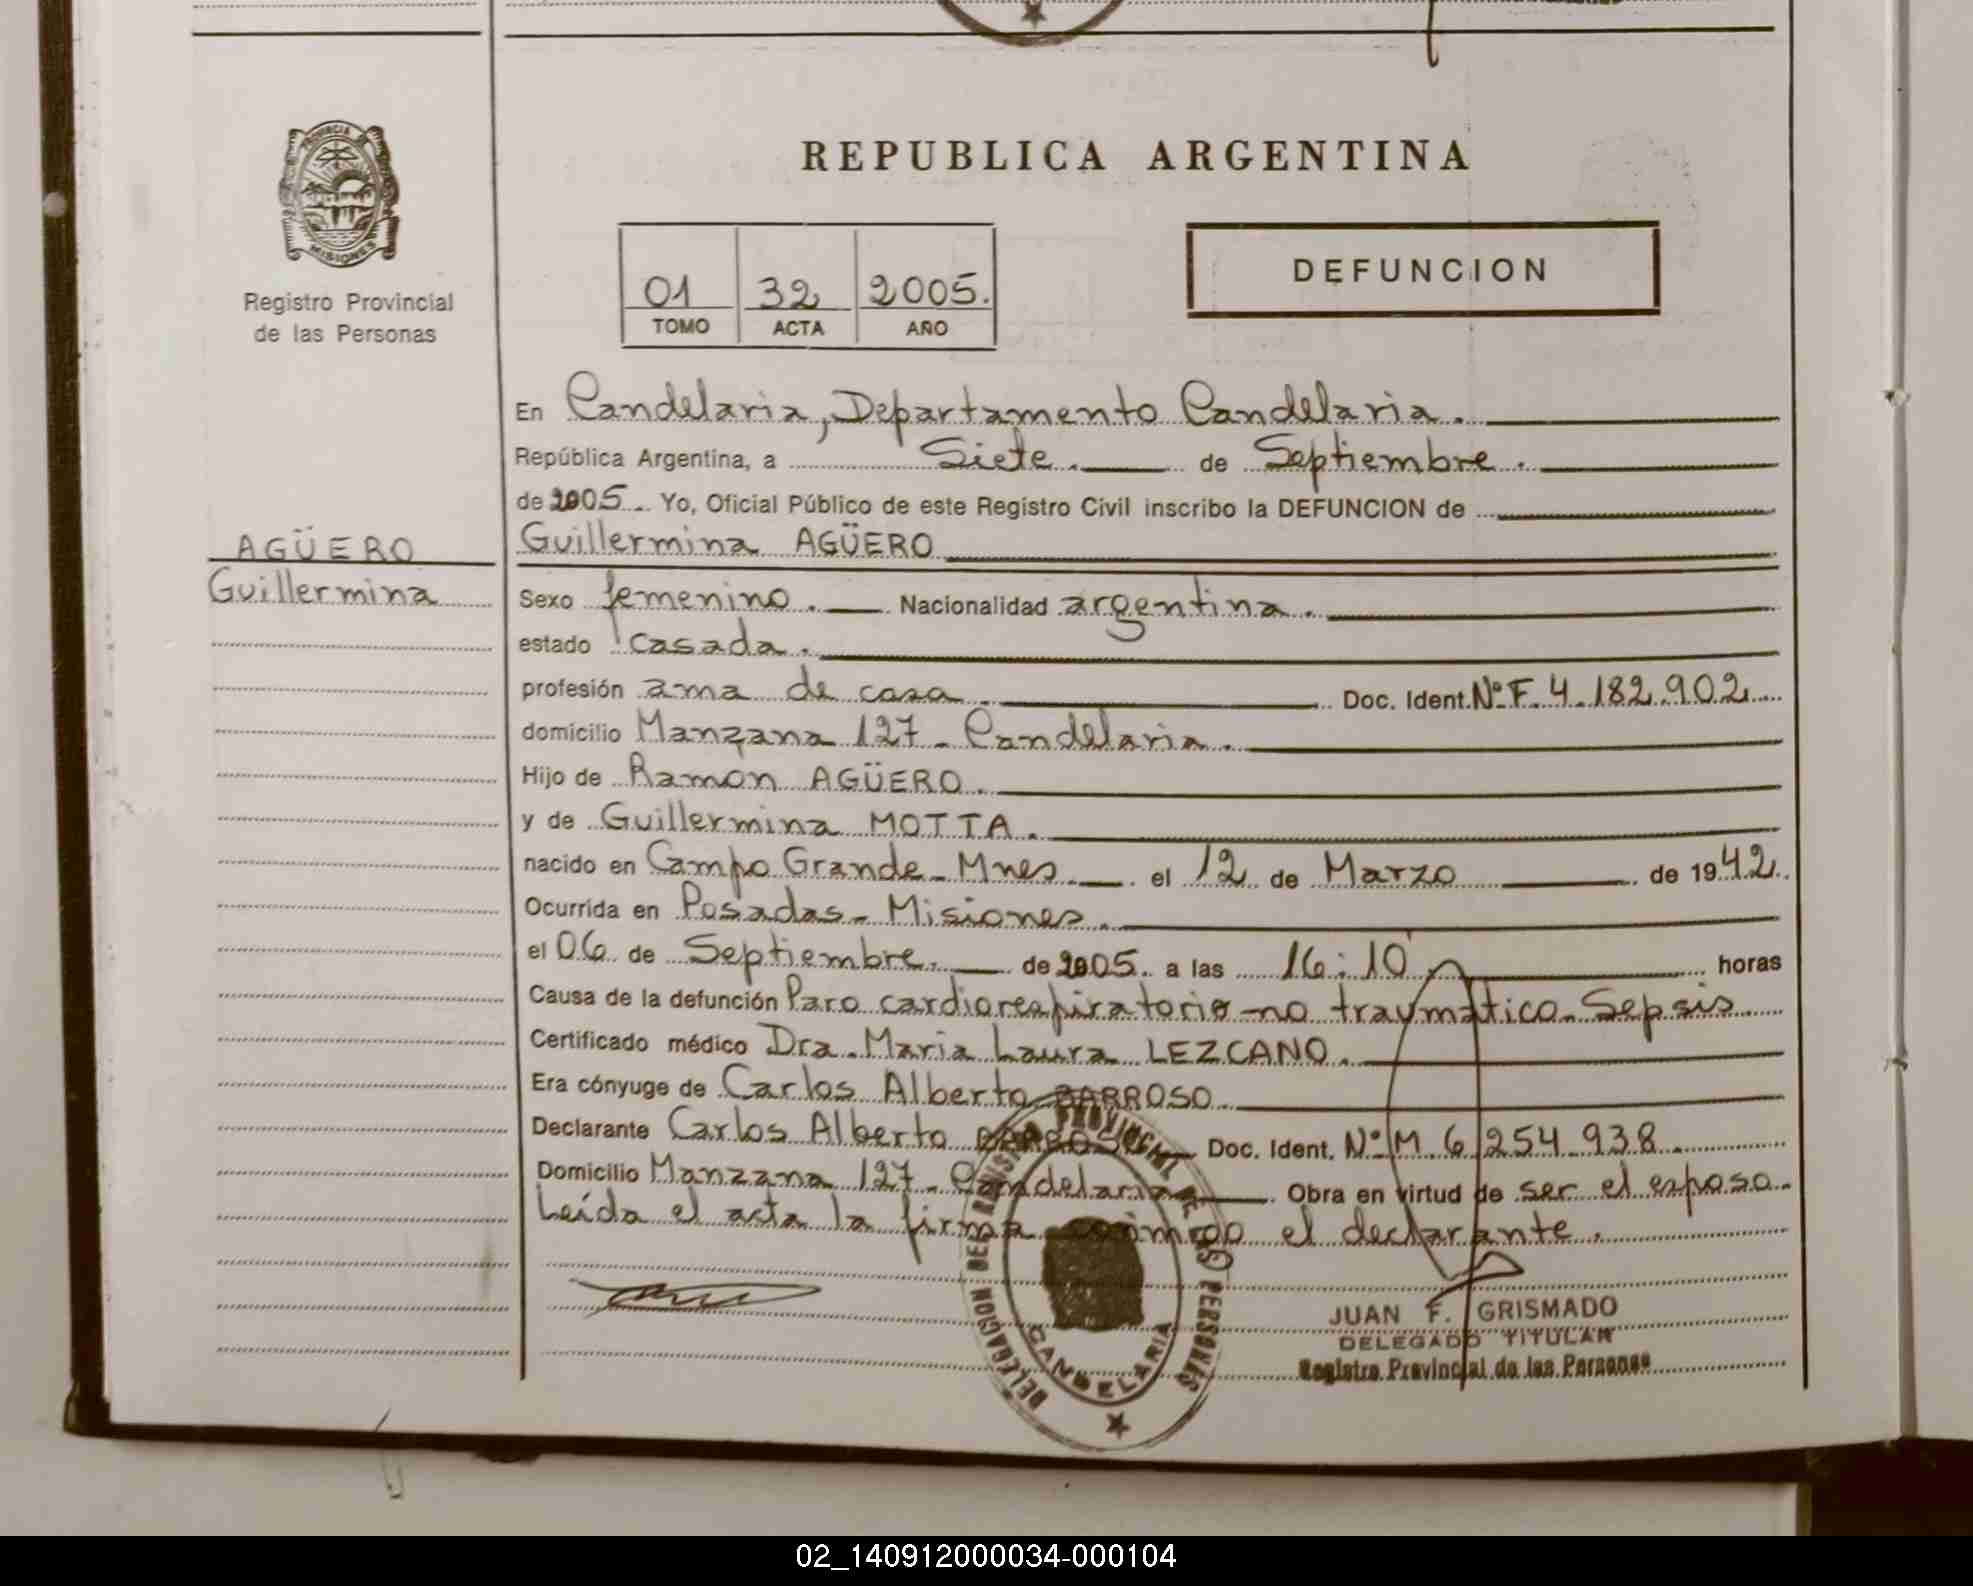 PROVINCIA DE
MISIONES
Registro Provincial
de las Personas
REPUBLICA ARGENTINA
01 32 2005.
TOMO ACTA AÑO
DEFUNCION
En Candelaria, Departamento Candelaria.
República Argentina, a Siete. de Septiembre.
de 2005. Yo, Oficial Público de este Registro Civil inscribo la DEFUNCION de
AGÜERO
Guillermina
Guillermina AGÜERO
Sexo femenino. Nacionalidad argentina.
estado casada.
profesión ama de casa. Doc. Ident. Nº F. 4.182.902
domicilio Manzana 127 - Candelaria.
Hijo de Ramon AGÜERO.
y de Guillermina MOTTA.
nacido en Campo Grande - Mnes. el 12 de Marzo de 1942.
Ocurrida en Posadas - Misiones.
el 06 de Septiembre. de 2005. a las 16:10 horas
Causa de la defunción Paro cardiorespiratorio no traumático - Sepsis
Certificado médico Dra. Maria Laura LEZCANO.
Era cónyuge de Carlos Alberto BARROSO.
Declarante Carlos Alberto BARROSO Doc. Ident. Nº M. 6.254.938
Domicilio Manzana 127 - Candelaria Obra en virtud de ser el esposo.
Leída el acta la firma conmigo el declarante.
DELEGACION DEL REGISTRO PROVINCIAL DE LAS PERSONAS
CANDELARIA
JUAN F. GRISMADO
DELEGADO TITULAR
Registro Provincial de las Personas
02_140912000034-000104